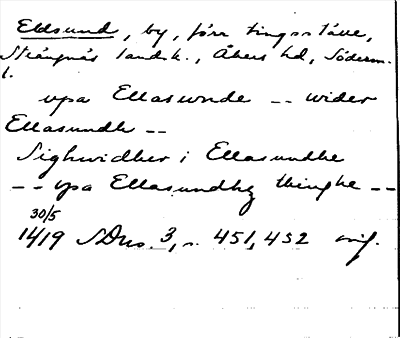 Eldsund, by, förr tingsställe,
Strängnäs landsk., Åkers hd, Söderm.
l.
upa Ellasunde -- wider
Ellasundh --
Sighwidher i Ellasundhe
-- upa Ellasundhz thinghe --
30/5
1419 SDns 3, s. 451, 452 orig.